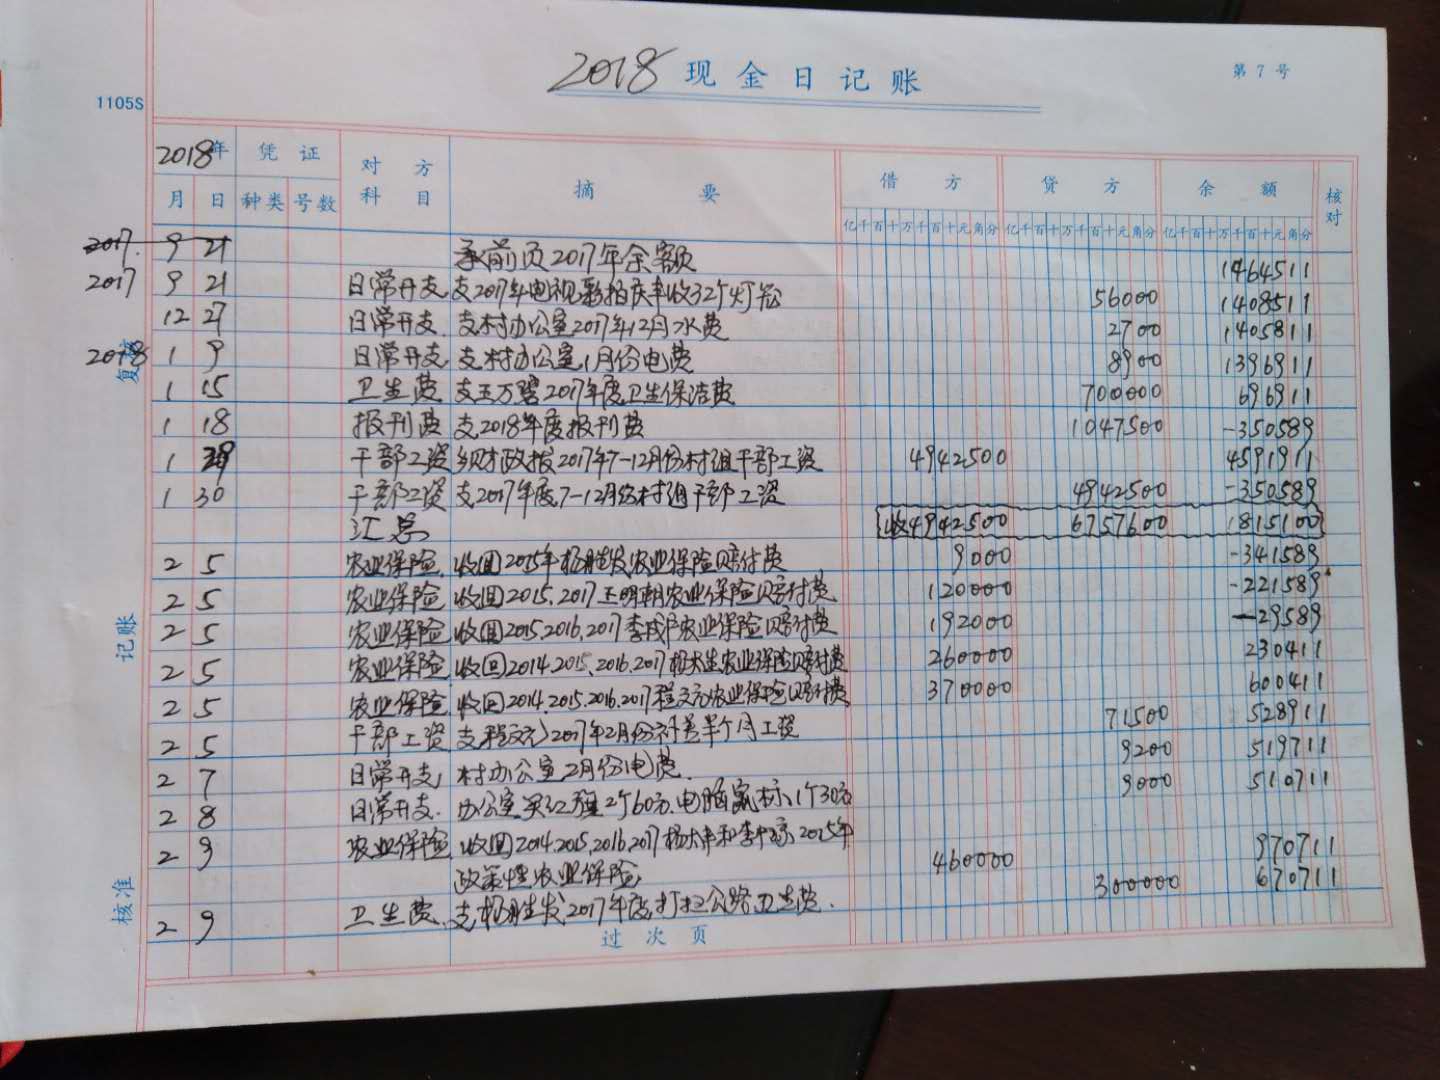 2018 现金日记账
第 7 号
1105S
2018年 凭证 对方科目 摘要 借方 贷方 余额 核对
月 日 种类 号数 亿千百十万千百十元角分 亿千百十万千百十元角分 亿千百十万千百十元角分
2017. 9 21 承前页2017年余额 1464511
2017 9 21 日常开支 支2017年电视彩拍庆丰收32个灯笼 56000 1408511
12 27 日常开支. 支村办公室2017年12月水费 2700 1405811
2018 1 9 日常开支 支村办公室1月份电费 8900 1396911
复核
1 15 卫生费 支王万碧2017年度卫生保洁费 700000 696911
1 18 报刊费 支2018年度报刊费 1047500 -350589
1 29 干部工资 乡财政拨2017年7-12月份村组干部工资 4942500 4591911
1 30 干部工资 支2017年度7-12月份村组干部工资 4942500 -350589
汇总 收4942500 6757600 1815100
2 5 农业保险 收回2015年杨胜发农业保险赔付费 9000 -341589
2 5 农业保险 收回2015.2017王明朝农业保险赔付费 120000 -221589
记账
2 5 农业保险 收回2015.2016.2017李成户农业保险赔付费 192000 -29589
2 5 农业保险 收回2014.2015.2016.2017杨大生农业保险赔付费 260000 230411
2 5 农业保险 收回2014.2015.2016.2017程文元农业保险赔付费 370000 600411
2 5 干部工资 支程文元2017年2月份补差半个月工资 71500 528911
2 7 日常开支 村办公室2月份电费. 9200 519711
2 8 日常开支. 办公室买红旗2个60元.电脑鼠标1个30元 9000 510711
2 9 农业保险 收回2014.2015.2016.2017杨大 和李中 2015年
政策性农业保险 460000 970711
核准
2 9 卫生费. 支杨胜发2017年度打扫公路卫生费. 300000 670711
过次页